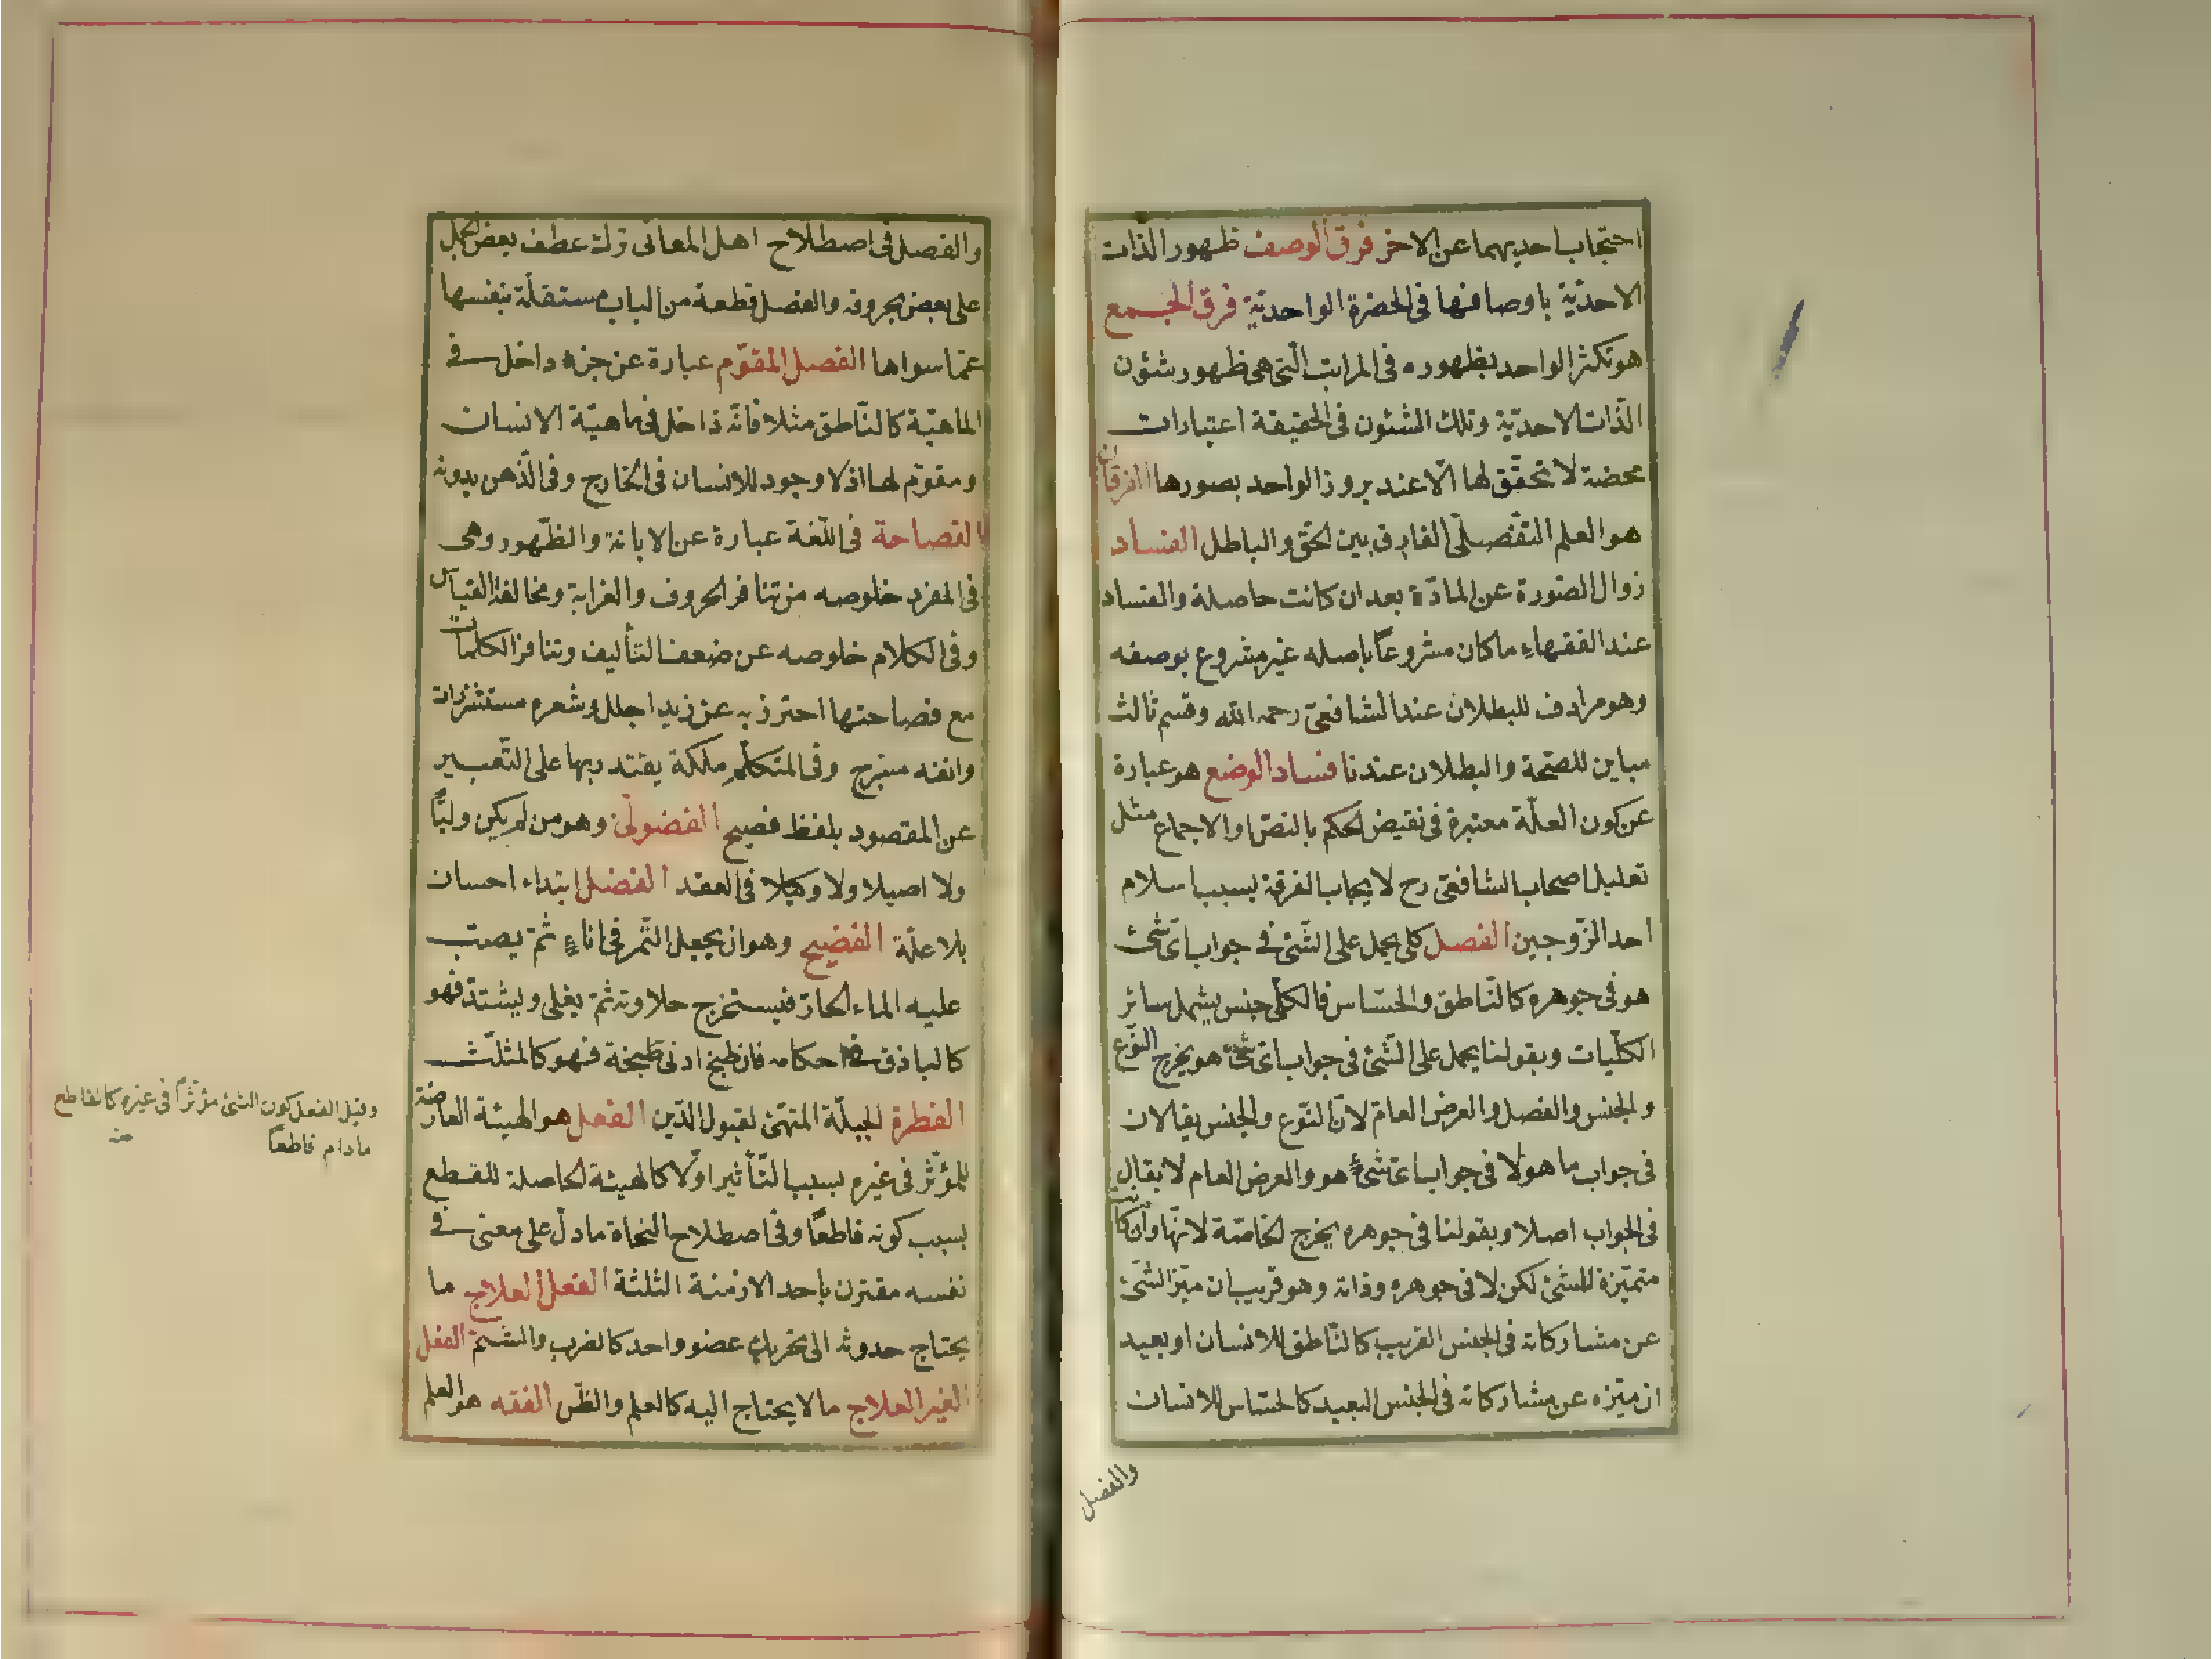 احتجاب احديهما عن الاخر فرق الوصف ظهور الذات
الاحديّة باوصافها فى الحضرة الواحديّة فرق الجمع
هو تكثر الواحد بظهوره فى المراتب الّتى هى ظهور شئون
الذّات الاحديّة وتلك الشئون فى الحقيقة اعتبارات
محضة لا تحقّق لها الّا عند بروز الواحد بصورها الفرقان
هو العلم التفصيلّى الفارق بين الحقّ والباطل الفساد
زوال الصّورة عن المادّة بعد ان كانت حاصلة والفساد
عند الفقهاء ماكان مشروعاً باصله غير مشروع بوصفه
وهو مرادف للبطلان عند الشافعىّ رحمه الله وقسم ثالث
مباين للصّحة والبطلان عندنا فساد الوضع هو عبارة
عن كون العلّة معتبرة فى نقيض الحكم بالنصّ او الاجماع مثل
تعليل اصحاب الشافعى رح لايجاب الفرقة بسبب اسلام
احد الزّوجين الفصل كلى يحمل على الشّئ فى جواب اىّ شئ
هو فى جوهره كالنّاطق والحسّاس فالكلّى جنس يشمل سائر
الكلّيات وبقولنا يحمل على الشّئ فى جواب اىّ شئ هو يخرج النّوع
والجنس والفصل والعرض العامّ لانّ النّوع والجنس يقالان
فى جواب ما هو لا فى جواب اىّ شئ هو والعرض العام لا يقال
فى الجواب اصلا وبقولنا فى جوهره يخرج الخاصّة لانّها وان كانت
متميّزة للشئ لكن لا فى جوهره وذاته وهو قريب ان ميّز الشّئ
عن مشاركاته فى الجنس القريب كالنّاطق للانسان او بعيد
ان ميّزه عن مشاركاته فى الجنس البعيد كالحسّاس للانسان
والفصل
والفصل فى اصطلاح اهل المعانى ترك عطف بعض الجمل
على بعض بحروفه والفصل قطعة من الباب مستقلّة بنفسها
عمّا سواها الفصل المقوّم عبارة عن جزء داخل فى
الماهيّة كالنّاطق مثلا فانّه داخل فى ماهيّة الانسان
ومقوّم لها اذ لا وجود للانسان فى الخارج وفى الذّهن بدونه
الفصاحة فى اللّغة عبارة عن الابانة والظّهور وهى
فى المفرد خلوصه من تنافر الحروف والغرابة ومخالفة القياس
وفى الكلام خلوصه عن ضعف التأليف وتنافر الكلمات
مع فصاحتها احترز به عن زيد اجلل وشعره مستشزرات
وانفه مسرج وفى المتكلّم ملكة يقتدر بها على التّعبير
عن المقصود بلفظ فصيح الفضولّى وهو من لم يكن وليّاً
ولا اصيلا ولا وكيلا فى العقد الفضل ابتداء احسان
بلا علّة الفضيح وهو ان يجعل التّمر فى اناء ثمّ يصبّ
عليه الماء الحارّ فيستخرج حلاوته ثمّ يغلى ويشتدّ فهو
كالباذق فى احكامه فان طبخ ادنى طبخة فهو كالمثلّث
الفطرة الجبلّة المتهيّئ لقبول الدّين الفعل هو الهيئة العارضة
للمؤثّر فى غيره بسبب التّأثير اوّلا كالهيئة الحاصلة للقطع
بسبب كونه قاطعاً وفى اصطلاح النحاة ما دلّ على معنى فى
نفسه مقترن باحد الازمنة الثلثة الفعل العلاج ما
يحتاج حدوثه الى تحريك عضو واحد كالضرب والشتمّ الفعل
الغير العلاج ما لا يحتاج اليه كالعلم والظّن الفقه هو العلم
وقيل الفعل كون الشئ مؤثراً فى غيره كالقاطع
مادام قاطعاً منه